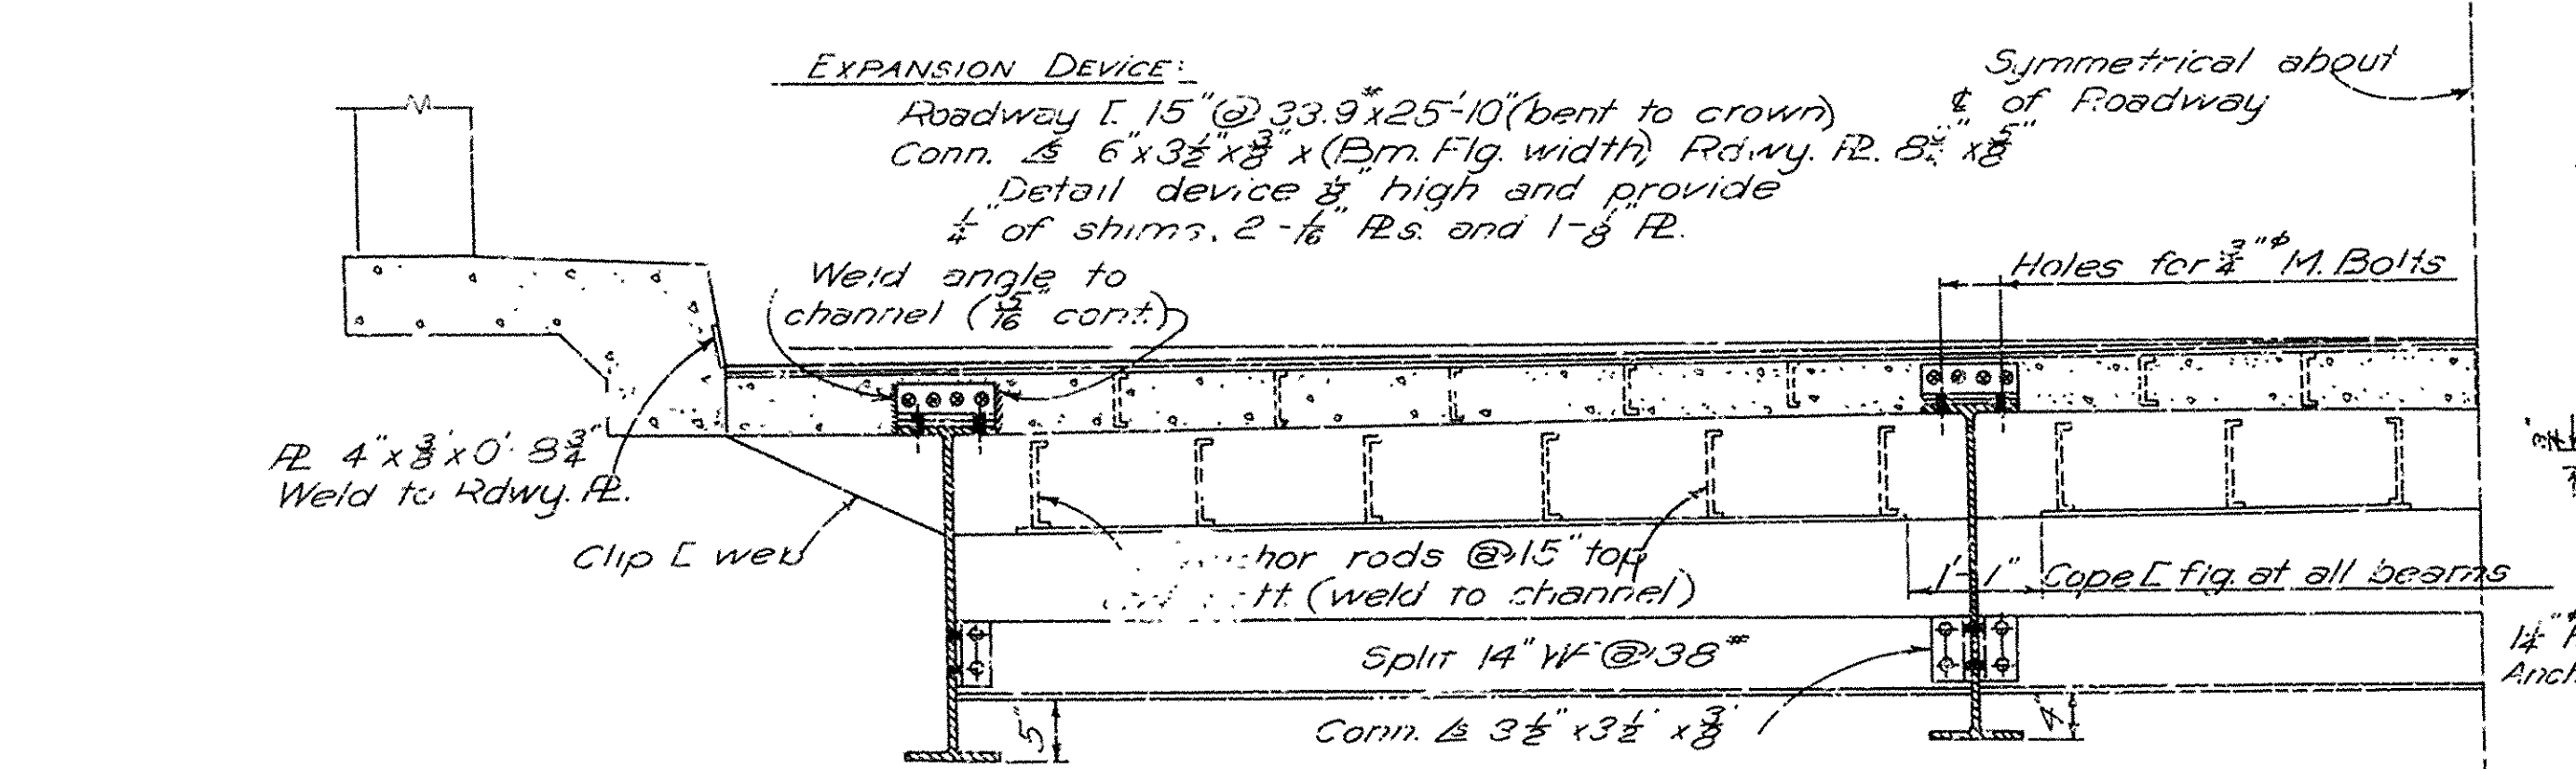 EXPANSION DEVICE:
Roadway [ 15"@33.9#x25'-10"(bent to crown)
Conn. ∠s 6"x3½"x⅜"x(Bm. Flg. width) Rdwy. PL. x⅝"
Detail device ⅛" high and provide
¼" of shims, 2-1/16" PLs. and 1-⅛" PL.
Symmetrical about
℄ of Roadway
Weld angle to
channel (5/16" cont.)
Holes for ¾"ϕ M. Bolts
PL 4"x⅜"x0'-8¾"
Weld to Rdwy. PL.
Clip [ web
rods @ 15" top
(weld to channel)
1'-1" Cope [ flg. at all beams
Split 14" WF @ 38#
Conn. ∠s 3½"x3½"x⅜"
5"
4"
¾"
1¼"ϕ